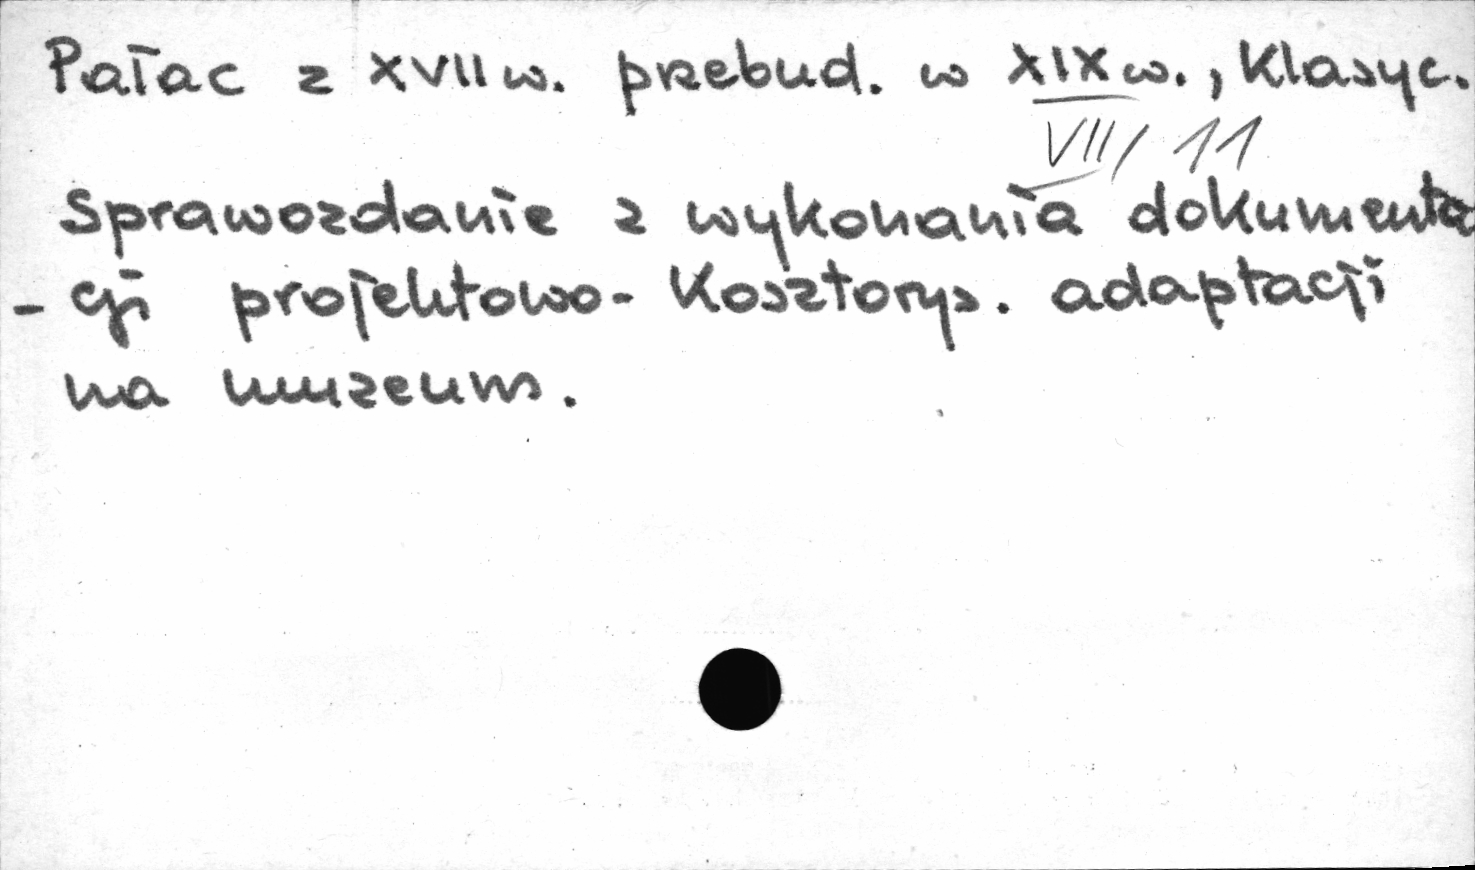 Pałac z XVII w. przebud. w XIX w., klasyc.
VII/ 11
Sprawozdanie z wykonania dokumenta
- cji projektowo- kosztorys. adaptacji
na muzeum.